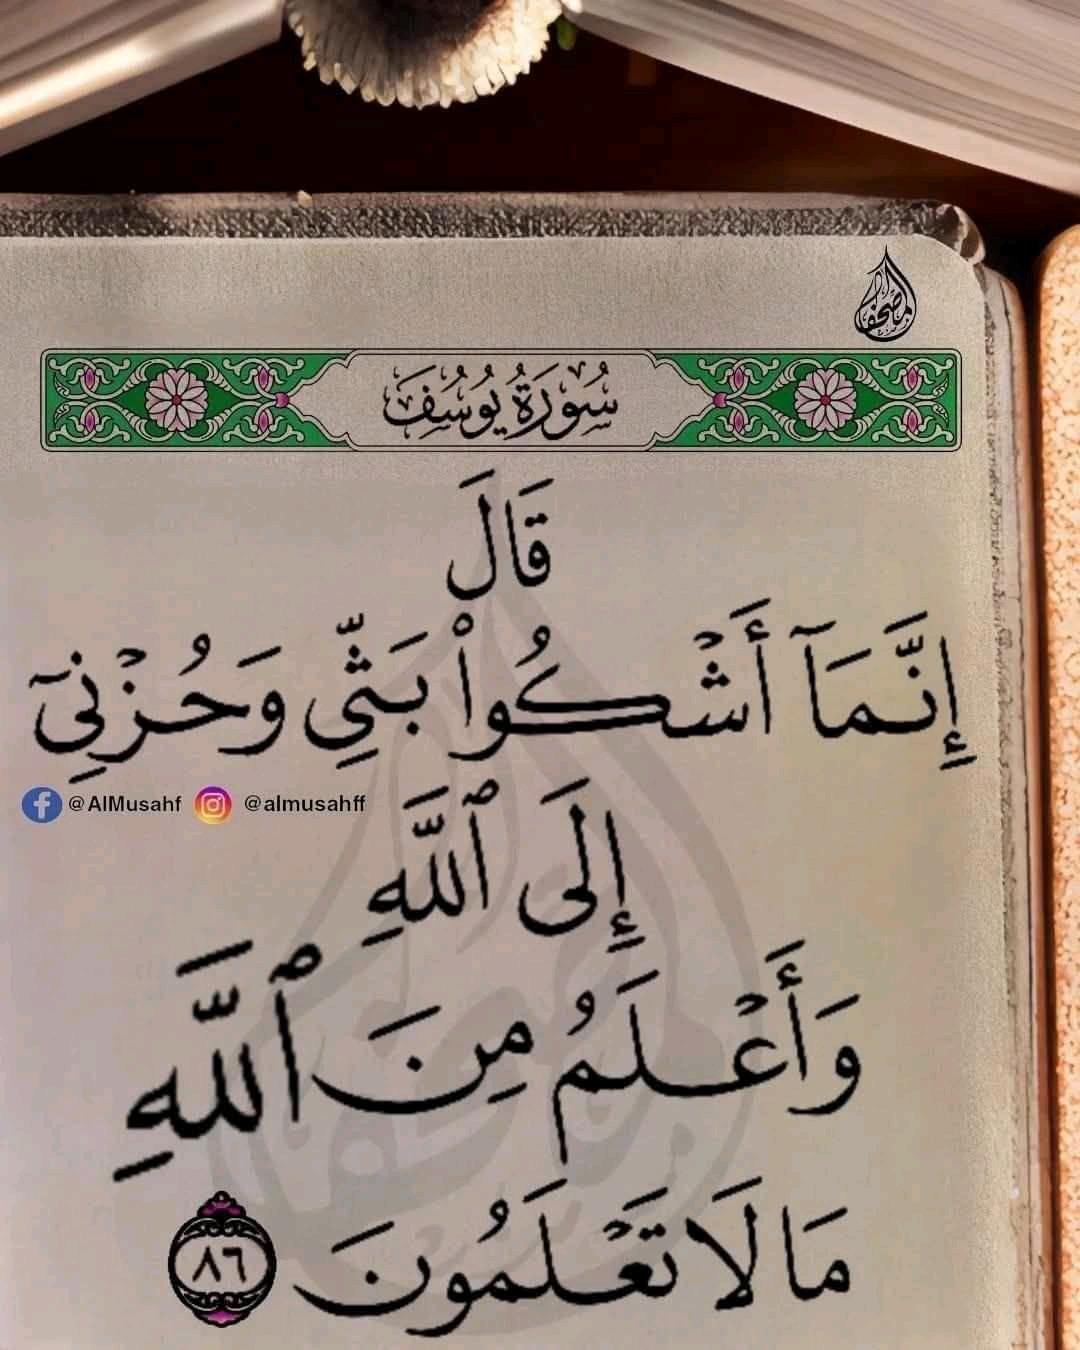 المصحف
سُورَةُ يُوسُفَ
قَالَ
إِنَّمَآ أَشۡكُواْ بَثِّي وَحُزۡنِيٓ
@AlMusahf @almusahff
إِلَى ٱللَّهِ
وَأَعۡلَمُ مِنَ ٱللَّهِ
مَا لَا تَعۡلَمُونَ ٨٦